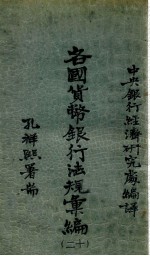 中央銀行經濟研究處編譯
各國貨幣銀行法規彙編
(二十)
孔祥熙署耑